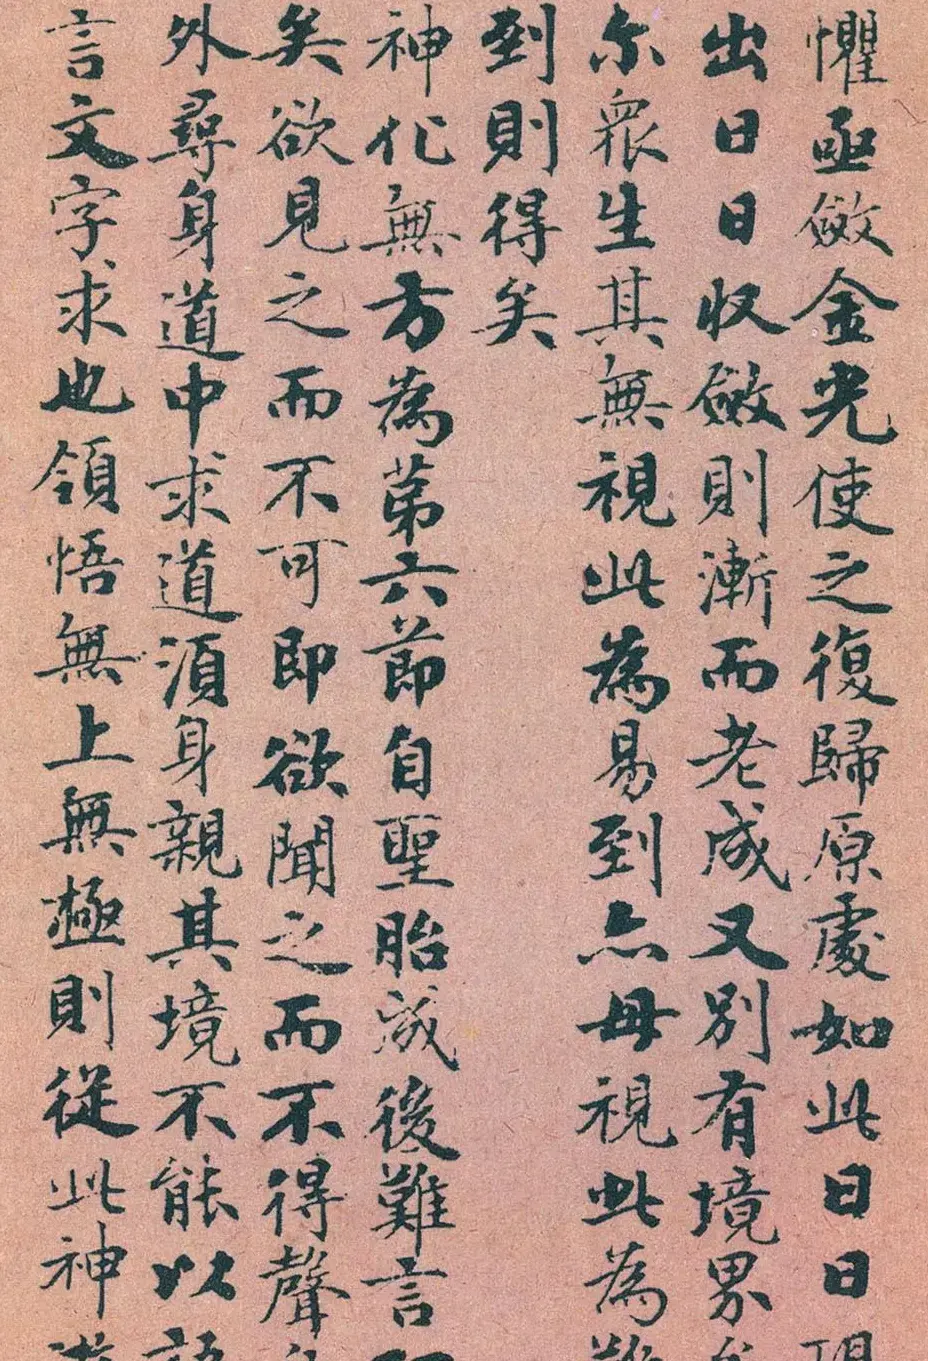 懼亟斂金光使之復歸原處如此日日
出日日收斂則漸而老成又別有境界
尔眾生其無視此為易到亦毋視此為
到則得矣
神化無方為第六節自聖胎成後難言
矣欲見之而不可即欲聞之而不得聲
外尋身道中求道須身親其境不能以
言文字求也領悟無上無極則從此神